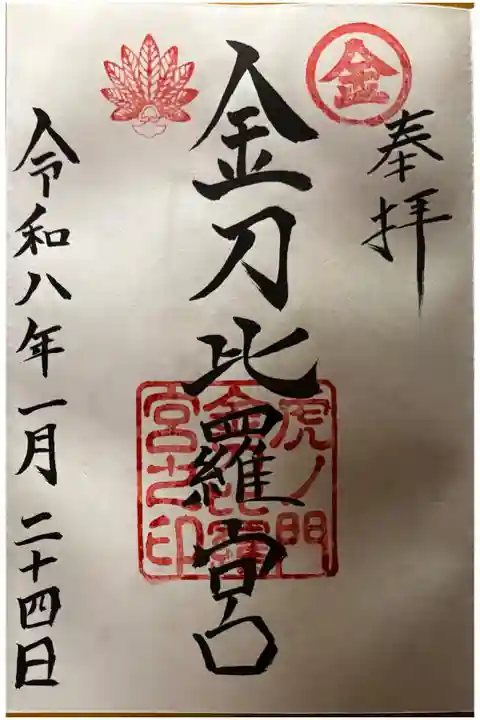 金
奉拝
金刀比羅宮
虎ノ門
金比羅
宮之印
令和八年一月二十四日